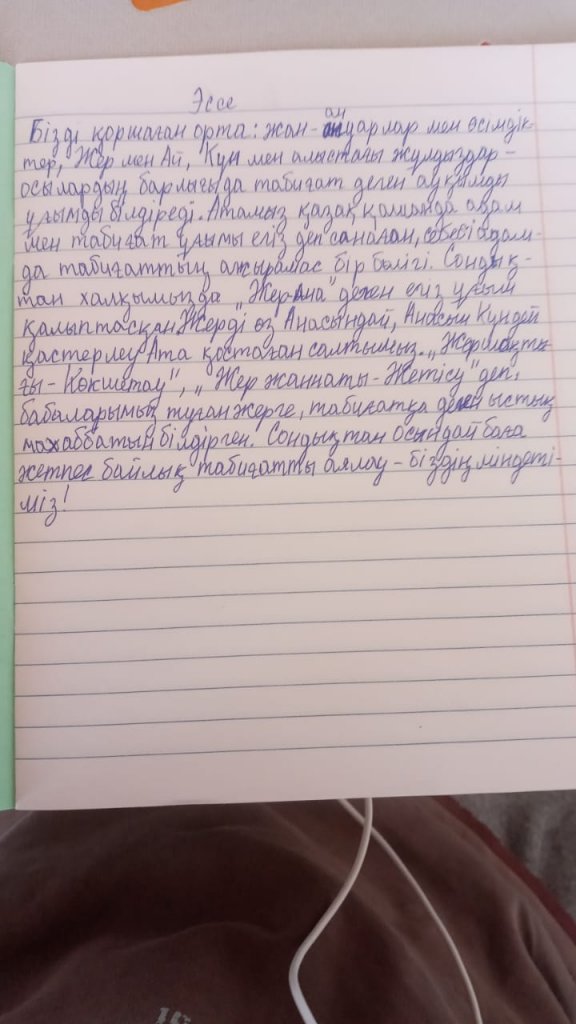 Эссе
Бізді қоршаған орта: жан-ануарлар мен өсімдік-
тер, Жер мен Ай, Күн мен алыстағы жұлдыздар -
осылардың барлығыда табиғат деген ауқымды
ұғымды білдіреді. Атамыз қазақ қашанда адам
мен табиғат ұғымы егіз деп санаған, себебі адам-
да табиғаттың ажырамас бір бөлігі. Сондық-
тан халқымызда "Жер-Ана" деген егіз ұғым
қалыптасқан Жерді өз Анасындай, Анасын Күндей
қастерлеу Ата қостаған салтымыз. "Жер шоқты-
ғы - Көкшетау", "Жер жаннаты - Жетісу" деп,
бабаларымыз туған жерге, табиғатқа деген ыстық
махаббатын білдірген. Сондықтан осындай баға
жетпес байлық табиғатты аялау - біздің міндеті-
міз!